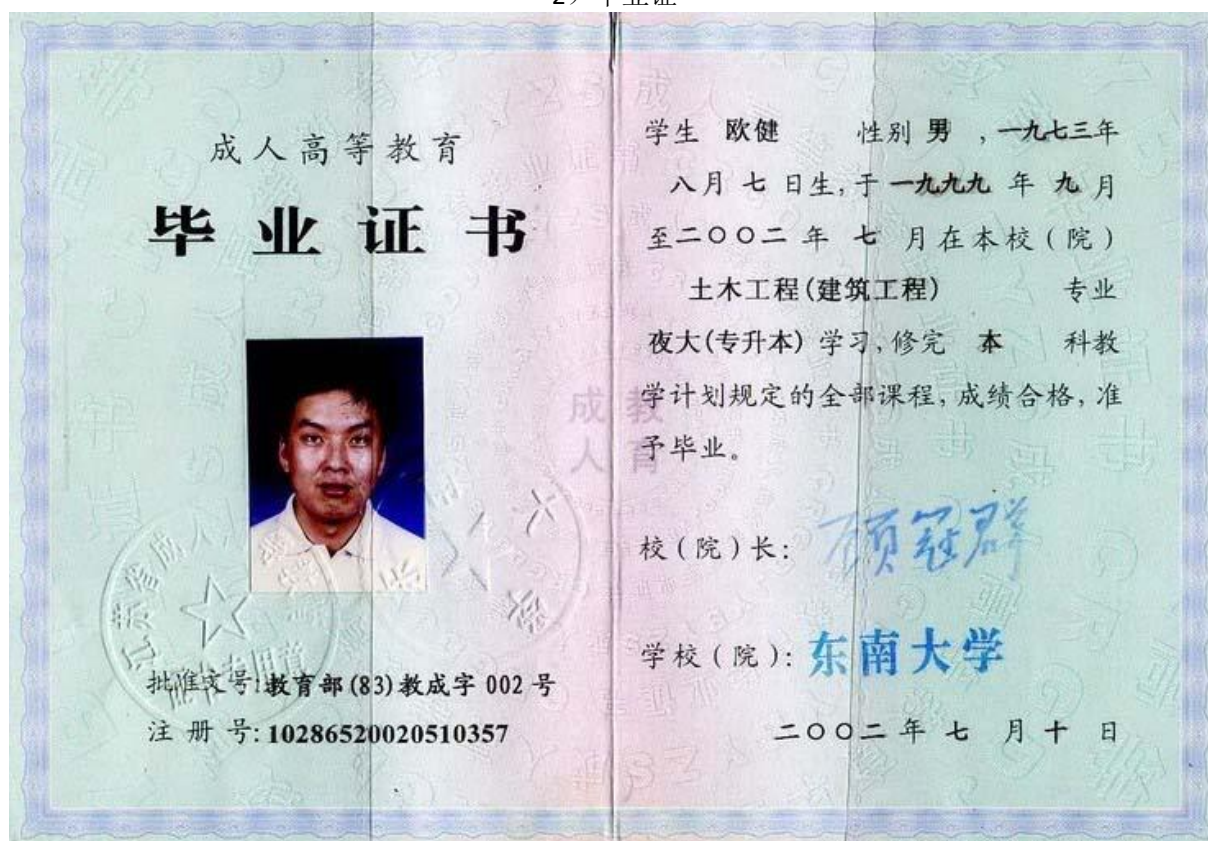 2) 毕业证
成人高等教育
毕业证书
批准文号:教育部(83)教成字 002 号
注 册 号:10286520020510357
学生 欧健 性别 男 ,一九七三年
八月 七 日生,于 一九九九 年 九 月
至二〇〇二 年 七 月在本校(院)
土木工程(建筑工程) 专业
夜大(专升本) 学习,修完 本 科教
学计划规定的全部课程,成绩合格,准
予毕业。
校(院)长: 顾冠群
学校(院): 东南大学
二〇〇二 年 七 月 十 日
成教
人育